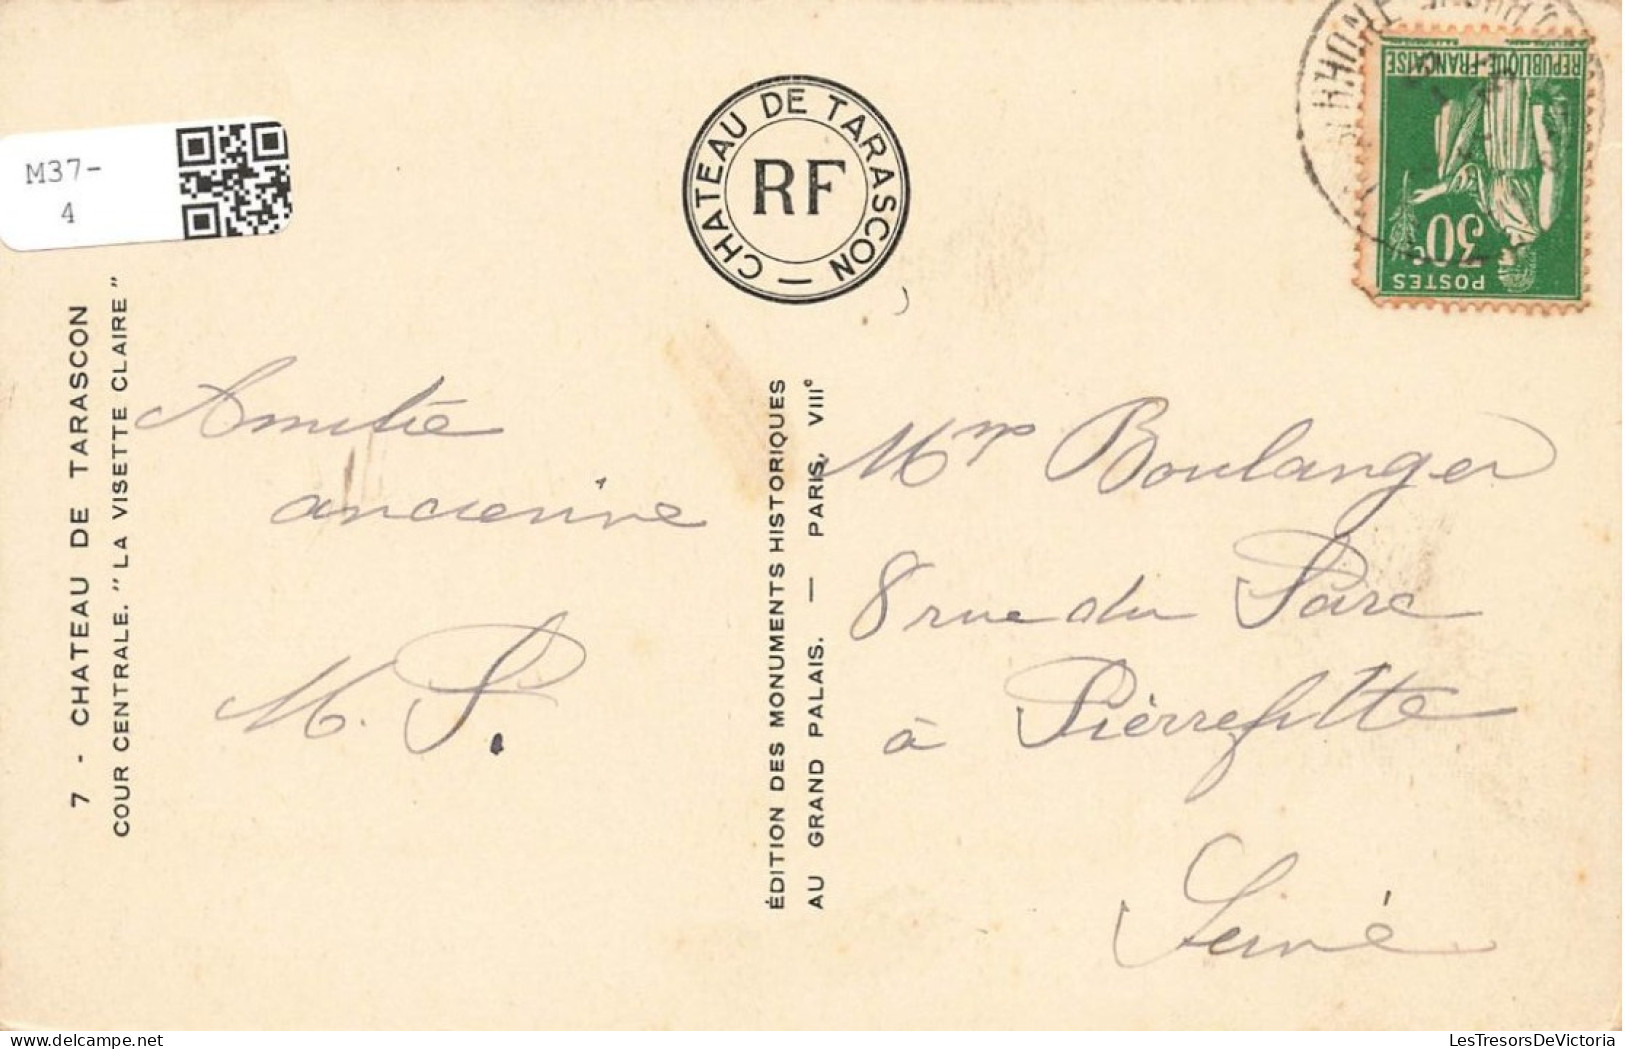 M37-
4
CHATEAU DE TARASCON —
RF
REPUBLIQUE FRANÇAISE
30c
POSTES
RHONE
7 - CHATEAU DE TARASCON
COUR CENTRALE. "LA VISETTE CLAIRE"
Amitié
ancienne
M. P.
ÉDITION DES MONUMENTS HISTORIQUES
AU GRAND PALAIS. — PARIS, VIIIe
Boulanger
8 rue du Parc
à Pierrefitte
Seine
LesTresorsDeVictoria